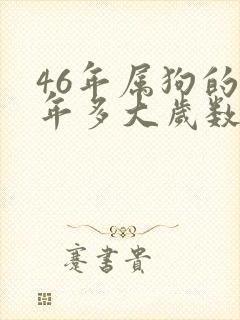 46年属狗的
年多大歲数
蹇書貴